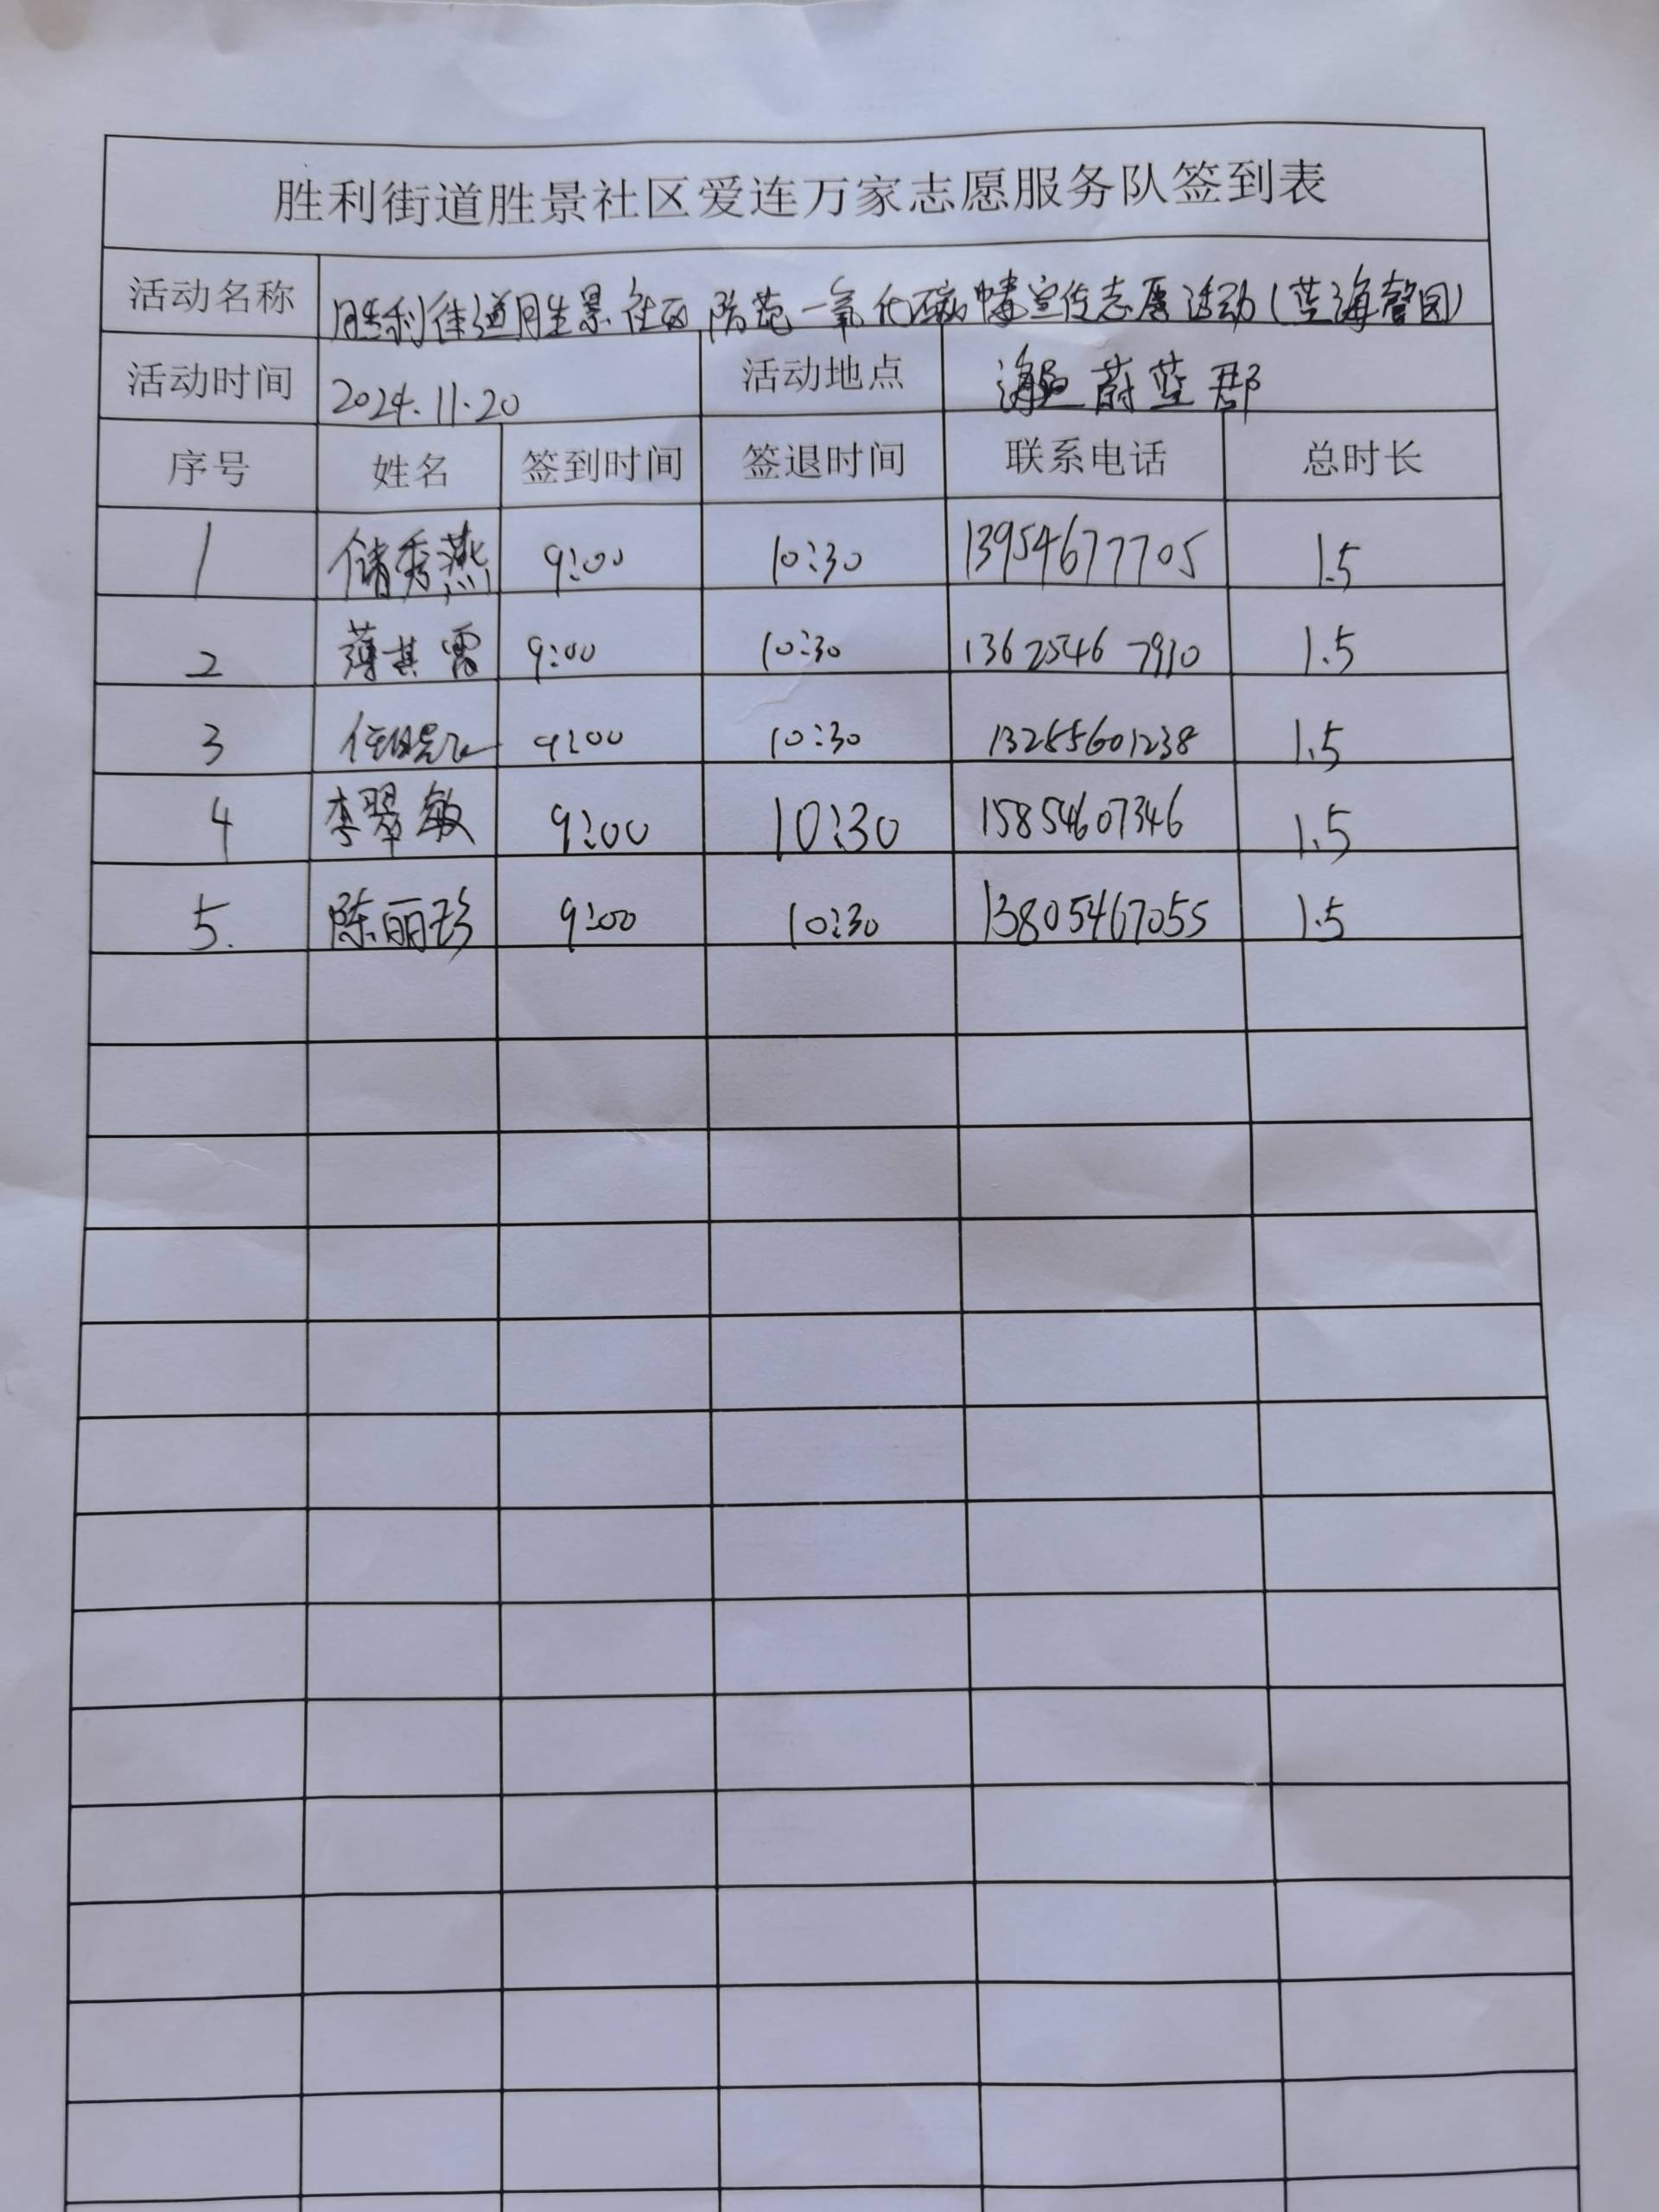 胜利街道胜景社区爱连万家志愿服务队签到表
活动名称 胜利街道胜景社区防范一氧化碳中毒宣传志愿活动(蓝海馨园)
活动时间 2024.11.20 活动地点 蔚蓝郡
序号 姓名 签到时间 签退时间 联系电话 总时长
1 储秀燕 9:00 10:30 13954677705 1.5
2 薄其雷 9:00 10:30 13625467910 1.5
3 任 9:00 10:30 13255601238 1.5
4 李翠敏 9:00 10:30 15854607346 1.5
5. 陈丽珍 9:00 10:30 13805467055 1.5